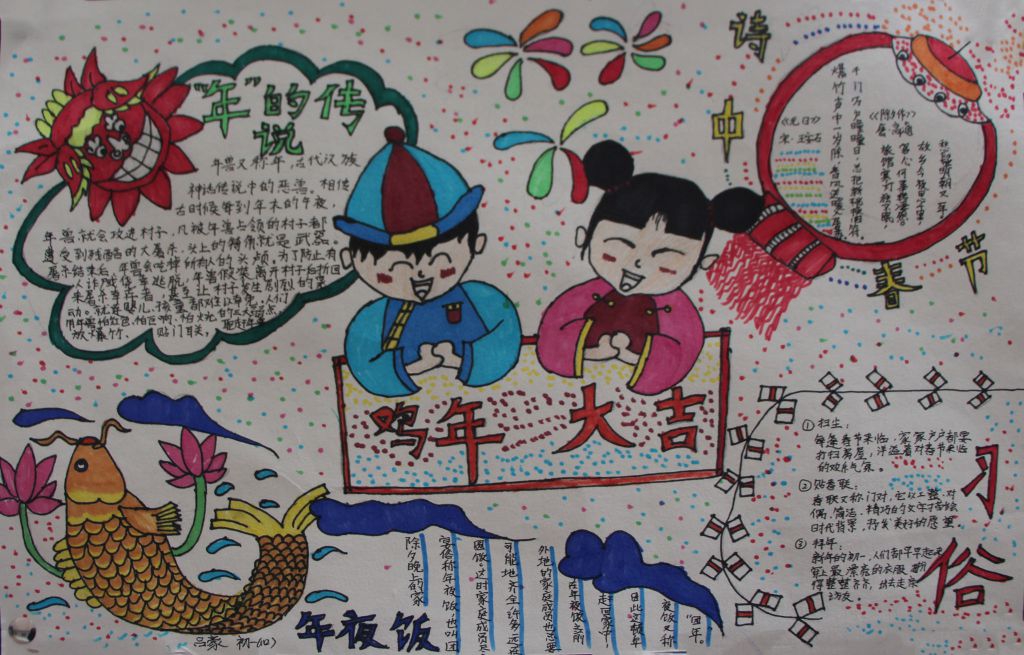 "年"的传
说
年兽又称年，古代汉族
神话传说中的恶兽。相传
古时候每到年末的午夜，
年兽就会攻进村子，凡被年兽占领的村子都
遭受到残酷的大屠杀，头上的犄角就是武器。
屠杀结束后，年兽会吃掉所有人的头颅。为了防止有
放爆竹、贴门联，
诗
中
春
节
《元日》
宋·王安石
爆竹声中一岁除，春风送暖入屠苏。
千门万户曈曈日，总把新桃换旧符。
《除夜》
唐·高适
旅馆寒灯独不眠，
客心何事转凄然。
故乡今夜思千里，
鸡年 大吉
习
俗
①扫尘：
每逢春节来临，家家户户都要
打扫房屋，洋溢着对春节来临
的欢乐气氛。
②贴春联：
春联又称门对，它以工整、对
偶、简洁、精巧的文字描绘
时代背景，抒发美好的愿望。
③拜年：
新年的初一，人们都早早起来
穿上最漂亮的衣服，打扮
得整整齐齐，出去走亲
访友
年夜饭
除夕晚上，各家
宴俗称年夜饭，也叫团
圆饭。这时家庭成员尽
可能地齐全，许多远在
外地的家庭成员也总要
在年夜饭之前
赶回家中，
因此这顿年
夜饭又称
"团年。"
吕豪 初一(10)